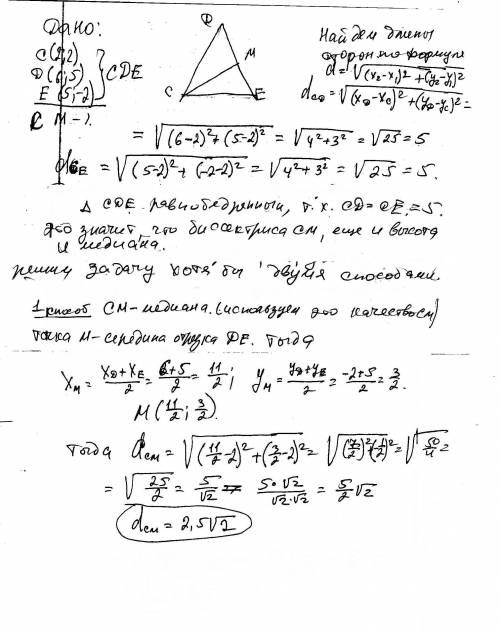 Дано:
C(2;2)
D(6;5)
E(5;-2)
} CDE
CM - ?
D
M
C
E
Найдем длины
сторон по формуле
d = √(x₂-x₁)² + (y₂-y₁)²
d_CD = √(x_D-x_C)² + (y_D-y_C)² =
= √(6-2)² + (5-2)² = √4²+3² = √25 = 5
d_CE = √(5-2)² + (-2-2)² = √4²+3² = √25 = 5.
Δ CDE равнобедренный, т.к. CD = CE = 5.
Это значит, что биссектриса CM, еще и высота
и медиана.
решим задачу хотя бы двумя способами
1 способ CM - медиана. (используем это качество см)
точка M - середина отрезка DE. Тогда
x_M = (x_D+x_E)/2 = (6+5)/2 = 11/2; y_M = (y_D+y_E)/2 = (-2+5)/2 = 3/2.
M(11/2; 3/2).
Тогда d_CM = √(11/2-2)² + (3/2-2)² = √(7/2)²+(1/2)² = √50/4 =
= √25/2 = 5/√2 = 5·√2/√2·√2 = 5/2 √2
d_CM = 2,5√2